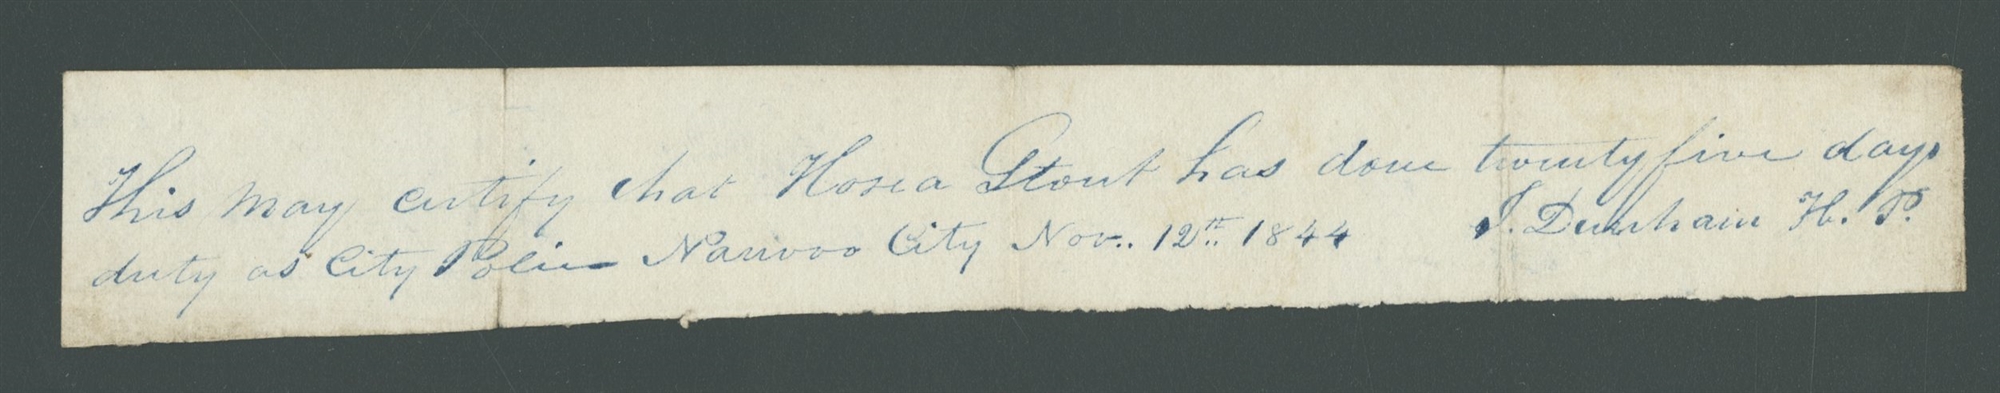 This may certify that Hosea Stout has done twentyfive days
duty as City Police Nauvoo City Nov. 12th 1844 J. Dunham H. P.